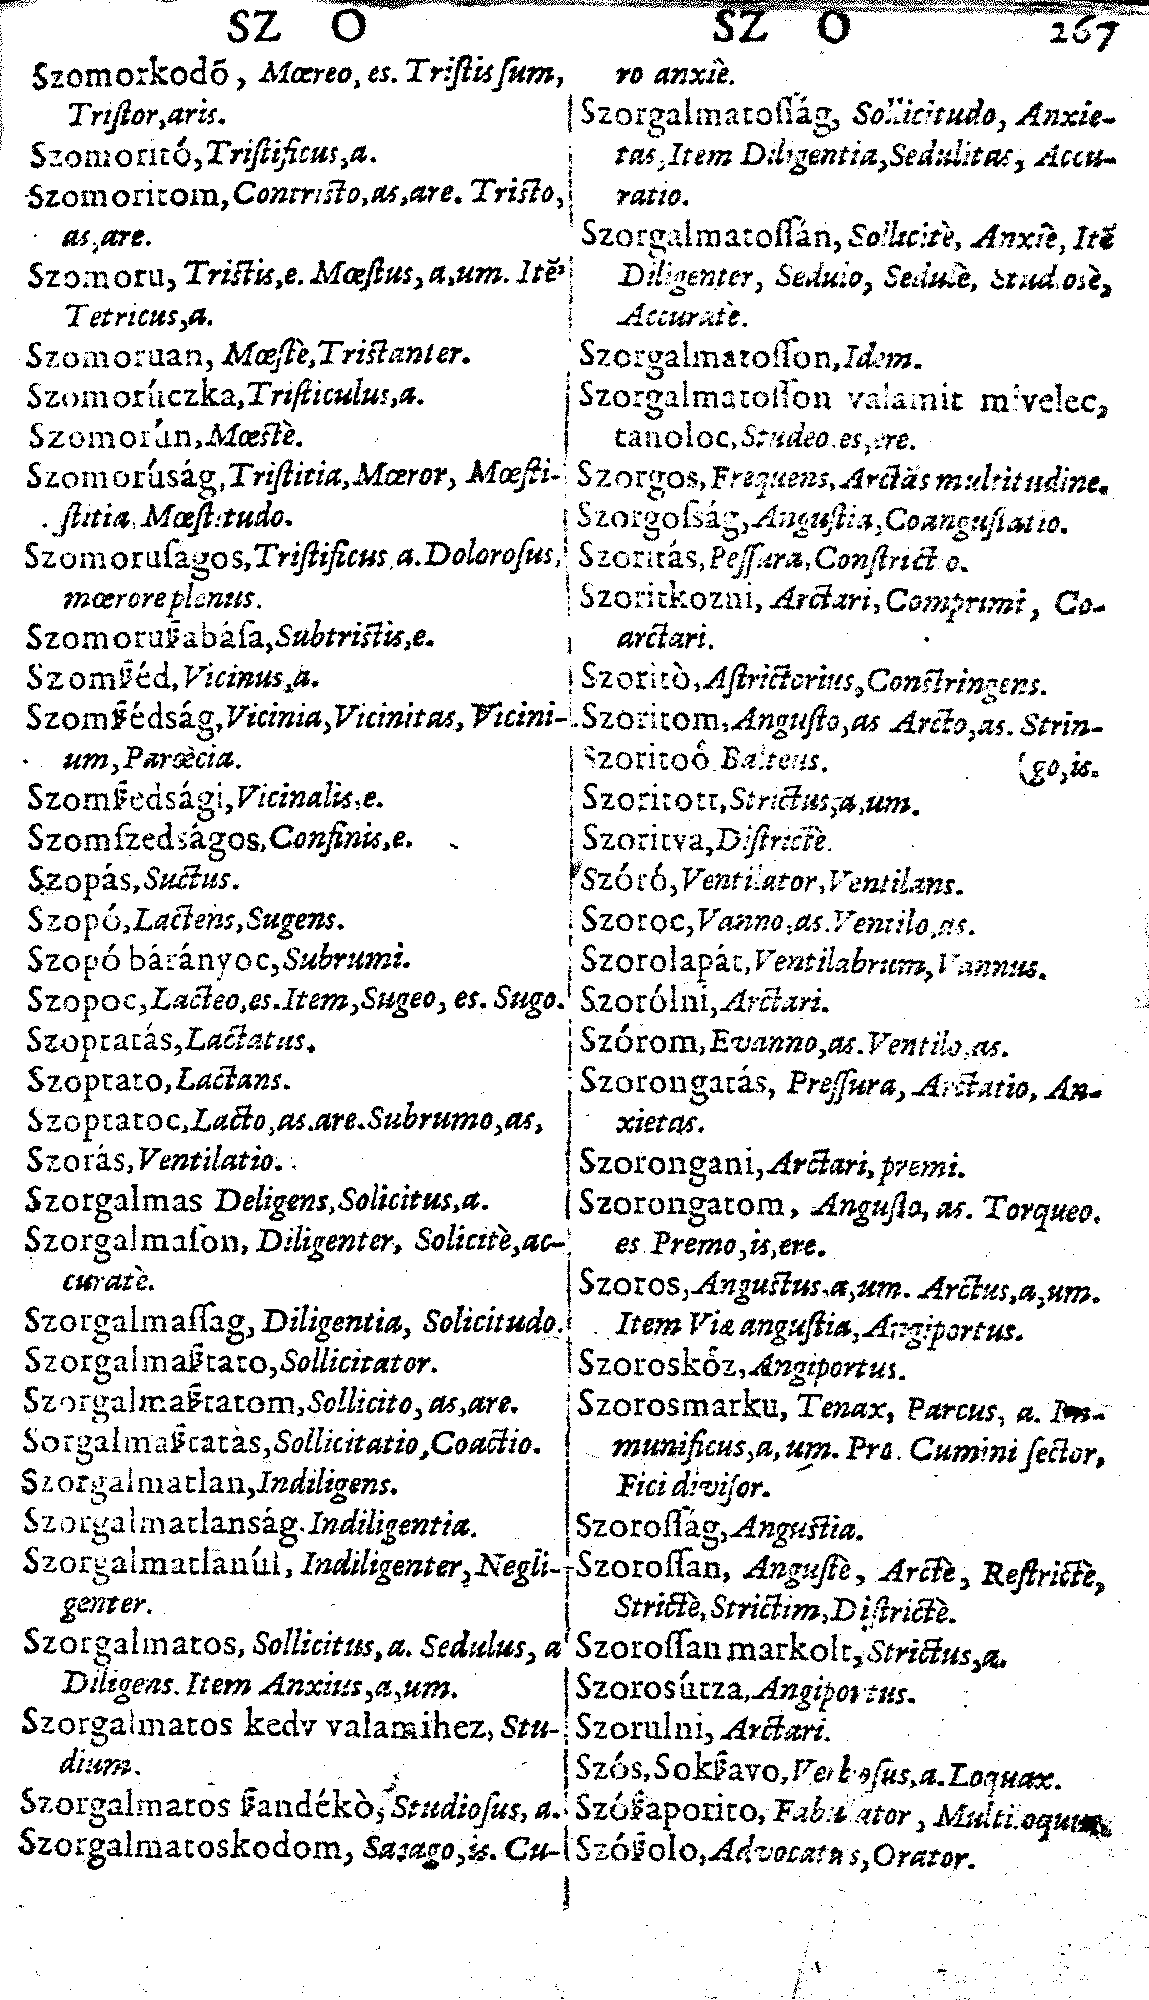 SZ O
SZ O 267
Szomorkodō, Mœreo, es. Tristis sum,
Tristor,aris.
Szomoritó,Tristificus,a.
Szomoritom,Contristo,as,are. Tristo,
as,are.
Szomoru, Tristis,e. Mœstus, a,um. Itē
Tetricus,a.
Szomoruan, Mœstè,Tristanter.
Szomorúczka,Tristiculus,a.
Szomorún,Mœstè.
Szomorúság,Tristitia,Mœror, Mœsti-
stitia, Mœstitudo.
Szomoruſagos,Tristificus a.Doloroſus,
mœrore plenus.
Szomoruſzabáſa,Subtristis,e.
Szomſzéd,Vicinus,a.
Szomſzédság,Vicinia,Vicinitas, Vicini-
um,Parœcia.
Szomſzedsági,Vicinalis,e.
Szomſzedságos,Confinis,e.
Szopás,Suctus.
Szopó,Lactens,Sugens.
Szopó bárányoc,Subrumi.
Szopoc,Lacteo,es.Item,Sugeo, es. Sugo.
Szoptatás,Lactatus.
Szoptato,Lactans.
Szoptatoc,Lacto,as.are.Subrumo,as,
Szorás,Ventilatio.
Szorgalmas Deligens,Solicitus,a.
Szorgalmaſon, Diligenter, Solicitè,ac-
curatè.
Szorgalmaſſag, Diligentia, Solicitudo.
Szorgalmaſztato,Sollicitator.
Szorgalmaſztatom,Sollicito, as,are.
Sorgalmaſztatàs,Sollicitatio,Coactio.
Szorgalmatlan,Indiligens.
Szorgalmatlanság.Indiligentia.
Szorgalmatlanúl, Indiligenter, Negli-
genter.
Szorgalmatos, Sollicitus, a. Sedulus, a
Diligens. Item Anxius,a,um.
Szorgalmatos kedv valamihez, Stu-
dium.
Szorgalmatos ſzandékò, Studioſus, a.
Szorgalmatoskodom, Satago,is. Cu-
ro anxiè.
Szorgalmatoſſág, Sollicitudo, Anxie-
tas,Item Diligentia,Sedulitas, Accu-
ratio.
Szorgalmatoſſán, Sollicitè, Anxiè, Itē
Diligenter, Sedulo, Sedulè, Studiosè,
Accuratè.
Szorgalmatoſſon,Idem.
Szorgalmatoſſon valamit mivelec,
tanoloc,Studeo.es,ere.
Szorgos,Frequens, Arctās multitudine.
Szorgoſság,Angustia,Coangustatio.
Szoritás,Peſſura,Constrictio.
Szoritkozni, Arctari,Comprimi, Co-
arctari.
Szoritò,Astrictorius,Constringens.
Szoritom,Angusto,as Arcto,as. Strin-
Szoritoó Balteus. (go,is.
Szoritott,Strictus,a,um.
Szoritva,Districtè.
Szóró,Ventilator,Ventilans.
Szoroc,Vanno,as.Ventilo,as.
Szorolapát,Ventilabrum,Vannus.
Szorólni,Arctari.
Szórom,Evanno,as.Ventilo,as.
Szorongatás, Preſſura, Arctatio, An-
xietas.
Szorongani,Arctari,premi.
Szorongatom, Angusto, as. Torqueo.
es Premo,is,ere.
Szoros,Angustus,a,um. Arctus,a,um.
Item Viæ angustia,Angiportus.
Szoroskőz,Angiportus.
Szorosmarku, Tenax, Parcus, a. Im-
munificus,a,um. Pro. Cumini ſector,
Fici diviſor.
Szoroſſág,Angustia.
Szoroſſan, Angustè, Arctè, Restrictè,
Strictè,Strictim,Districtè.
Szoroſſan markolt,Strictus,a.
Szorosútza,Angiportus.
Szorulni, Arctari.
Szós,Sokſzavo,Verboſus,a.Loquax.
Szóſzaporito, Fabulator, Multiloquus,
Szóſzolo,Advocatus,Orator.